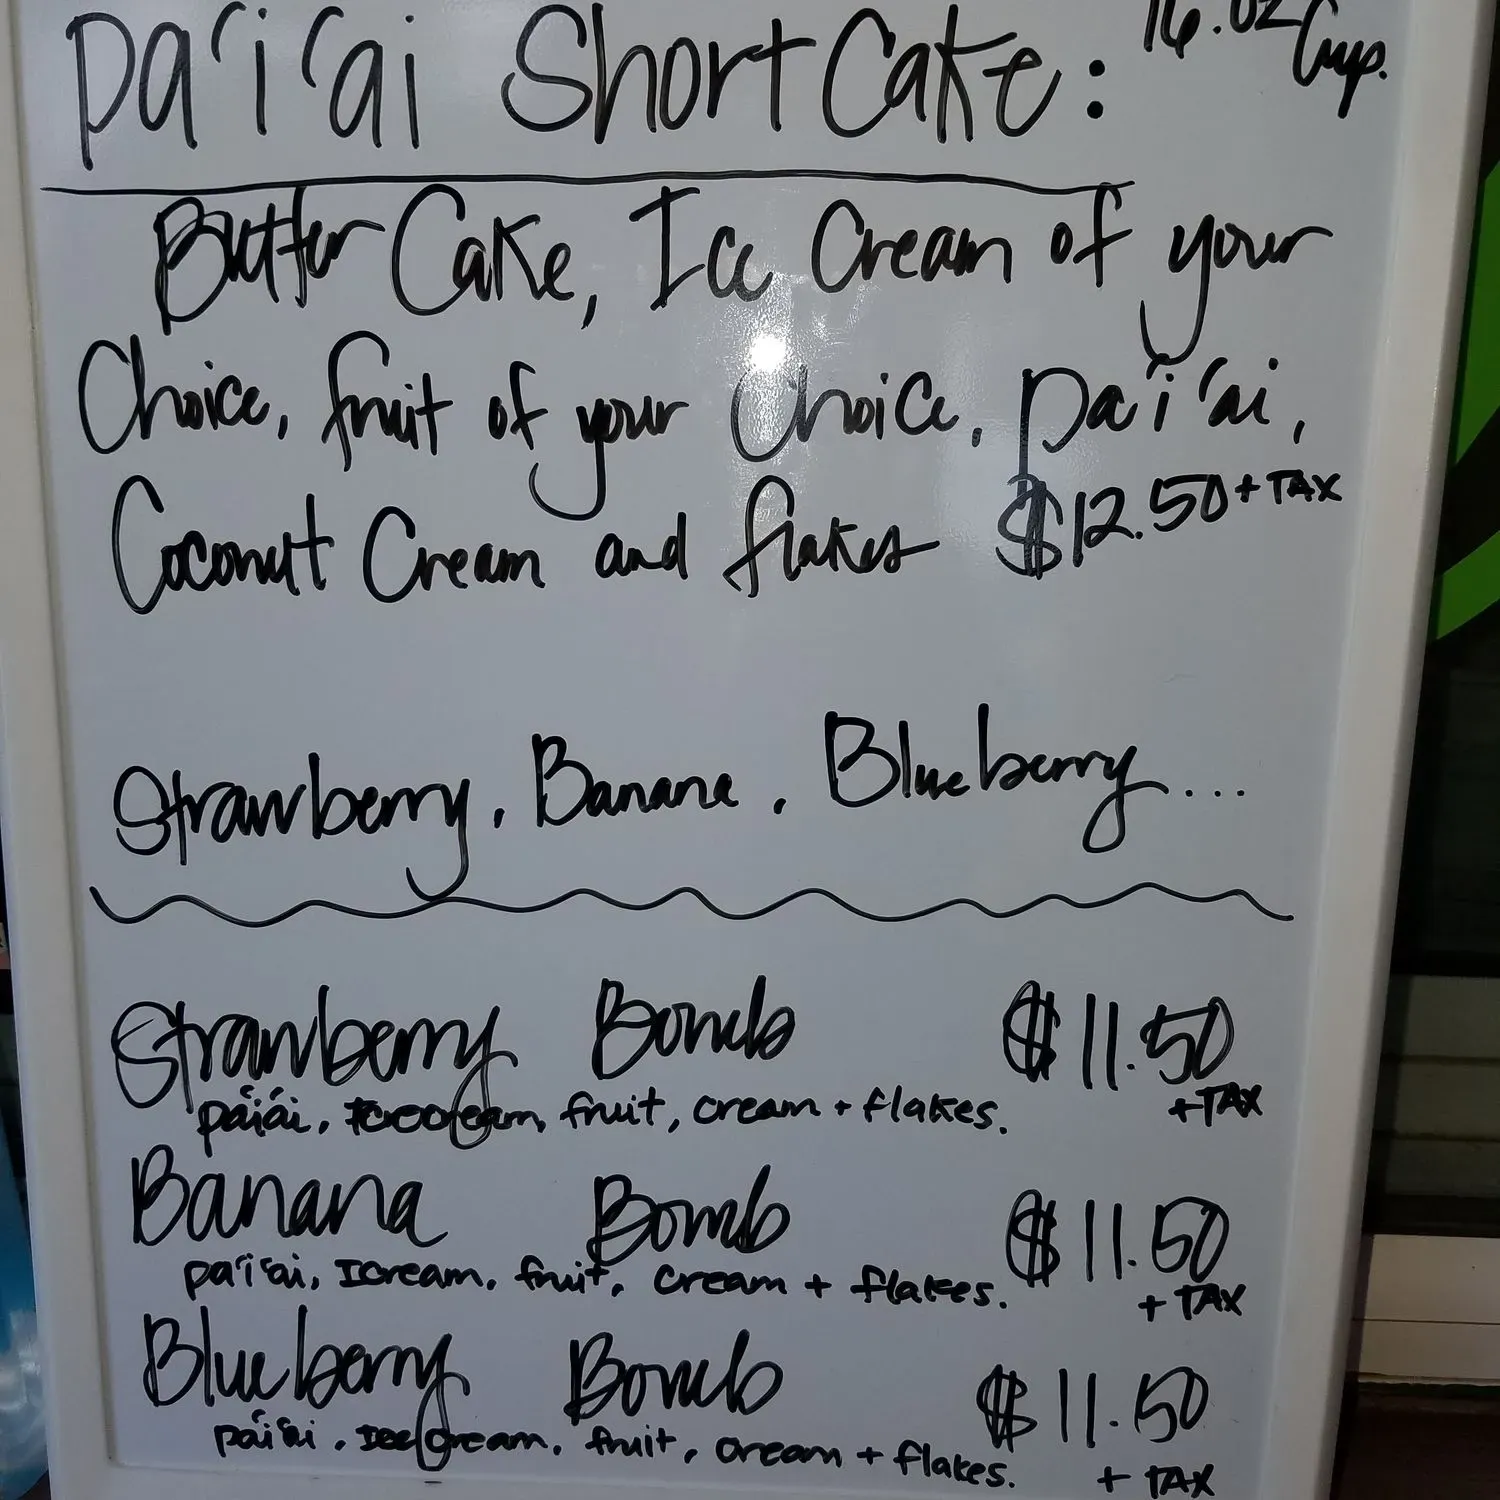 Pa'i'ai Short Cake: 16.oz Cup.
Butter Cake, Ice Cream of your
Choice, fruit of your Choice, Pa'i'ai,
Coconut Cream and flakes $12.50 + TAX
Strawberry, Banana, Blueberry...
Strawberry Bomb $11.50
pa'i'ai, Icecream, fruit, cream + flakes. + TAX
Banana Bomb $11.50
pa'i'ai, Icream, fruit, cream + flakes. + TAX
Blueberry Bomb $11.50
pa'i'ai, Icecream, fruit, cream + flakes. + TAX